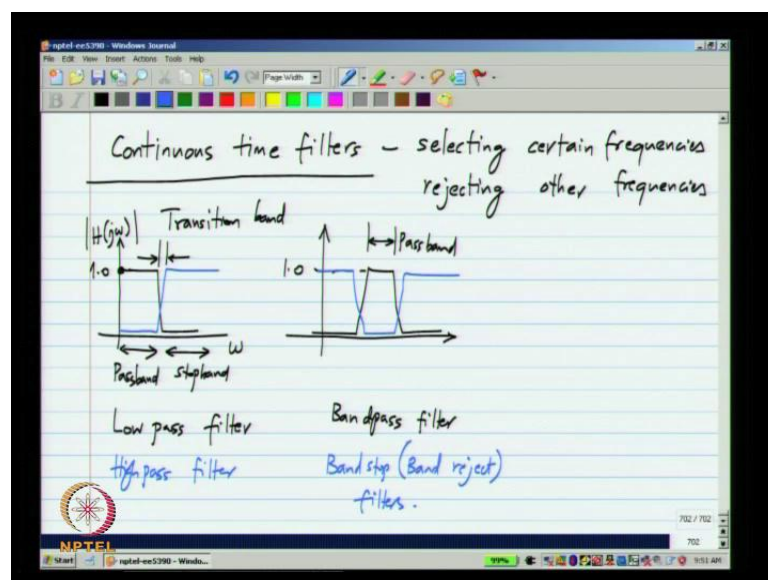 nptel-ee5390 - Windows Journal
File Edit View Insert Actions Tools Help
Page Width
B I
Continuous time filters - selecting certain frequencies
rejecting other frequencies
|H(jω)| Transition band
Passband
1.0
1.0
ω
Passband stopband
Low pass filter
Bandpass filter
High pass filter
Band stop (Band reject)
filters.
NPTEL
702 / 702
702
Start
nptel-ee5390 - Windo...
99%
9:51 AM